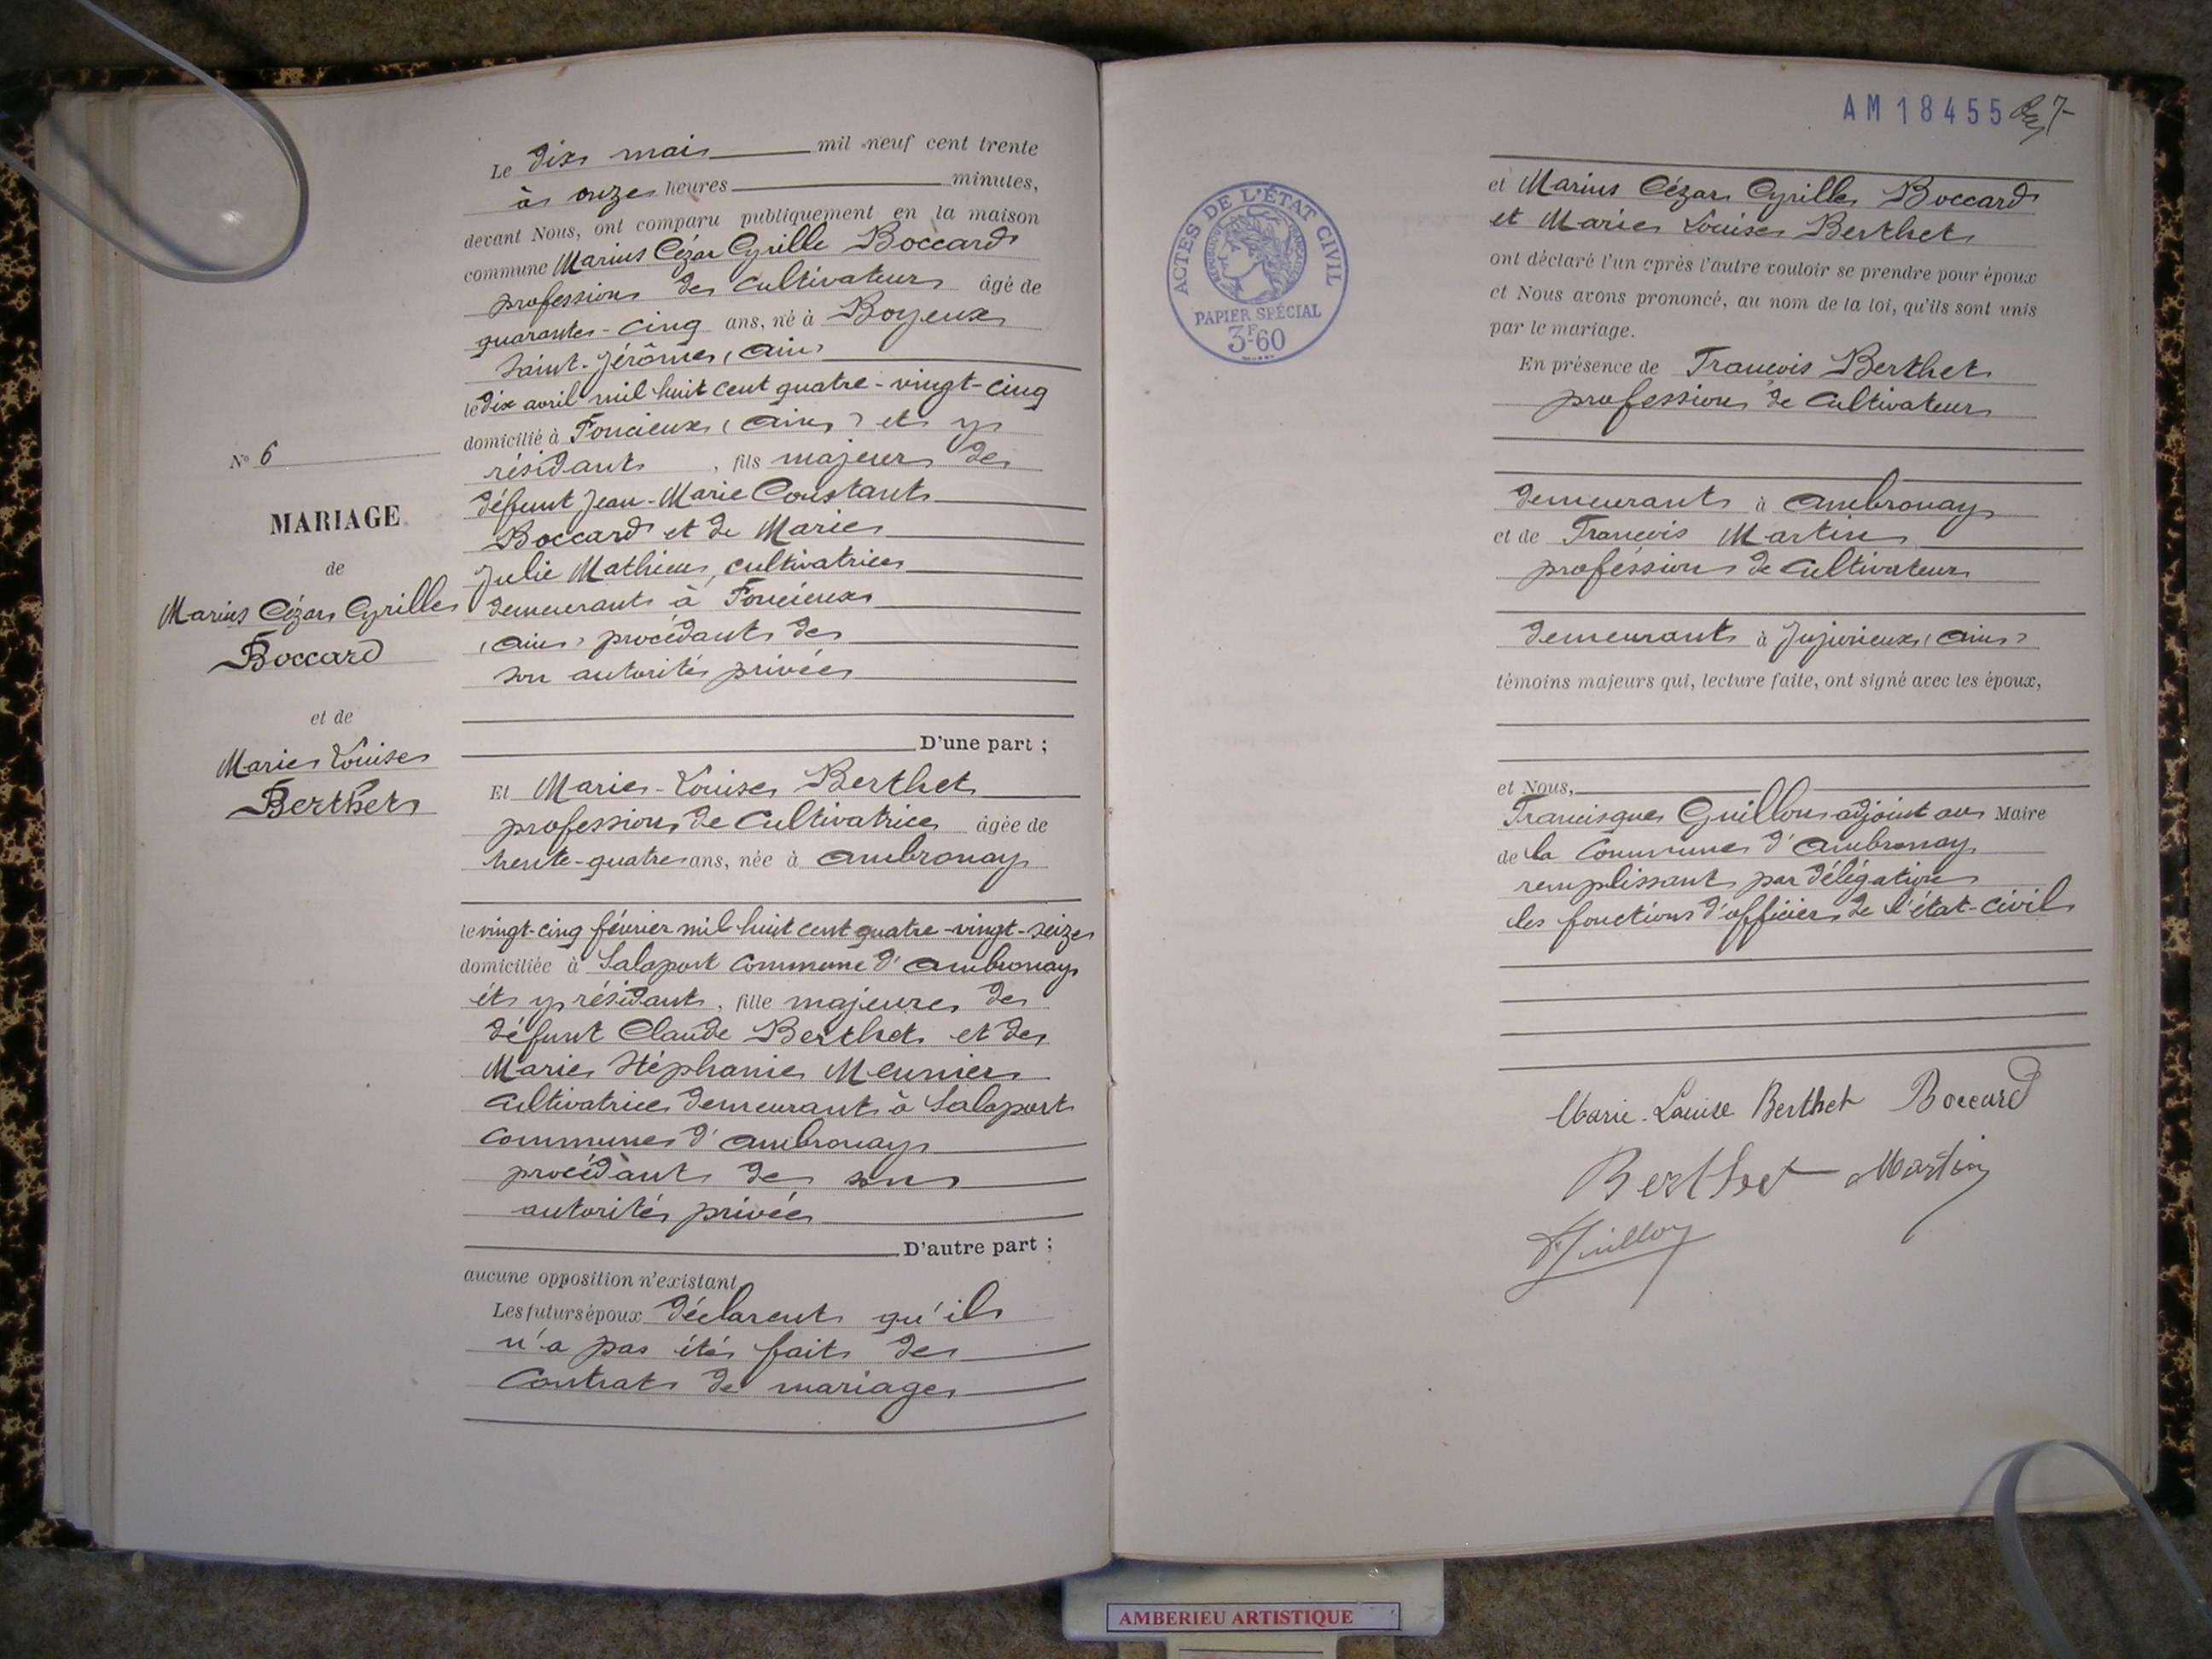 Le dix mai mil neuf cent trente
à onze heures minutes,
devant Nous, ont comparu publiquement en la maison
commune Marius Cézar Cyrille Boccard
profession de cultivateur âgé de
quarante-cinq ans, né à Boyeux
Saint-Jérôme (Ain)
le dix avril mil huit cent quatre-vingt-cinq
domicilié à Foncieux (Ain) et y
résidant, fils majeur de
défunt Jean-Marie Constant
Boccard et de Marie
Julie Mathieu, cultivatrice
demeurant à Foncieux
(Ain) procédant de
son autorité privée
D'une part ;
Et Marie-Louise Berthet
profession de cultivatrice âgée de
trente-quatre ans, née à Ambronay
le vingt-cinq février mil huit cent quatre-vingt-seize
domiciliée à Salaport commune d'Ambronay
et y résidant, fille majeure de
défunt Claude Berthet et de
Marie Stéphanie Meunier
cultivatrice demeurant à Salaport
commune d'Ambronay
procédant de son
autorité privée
D'autre part ;
aucune opposition n'existant.
Les futurs époux déclarent qu'il
n'a pas été fait de
contrat de mariage
N° 6
MARIAGE
de
Marius Cézar Cyrille
Boccard
et de
Marie Louise
Berthet
AM 18455
ACTES DE L'ÉTAT CIVIL
RÉPUBLIQUE FRANÇAISE
PAPIER SPÉCIAL
3F60
et Marius Cézar Cyrille Boccard
et Marie Louise Berthet
ont déclaré l'un après l'autre vouloir se prendre pour époux
et Nous avons prononcé, au nom de la loi, qu'ils sont unis
par le mariage.
En présence de François Berthet
profession de cultivateur
demeurant à Ambronay
et de François Martin
profession de cultivateur
demeurant à Jujurieux (Ain)
témoins majeurs qui, lecture faite, ont signé avec les époux,
et Nous,
Francisque Guillon adjoint au Maire
de la commune d'Ambronay
remplissant par délégation
les fonctions d'officier de l'état-civil
Marie-Louise Berthet Boccard
Berthet Martin
Guillon
AMBERIEU ARTISTIQUE